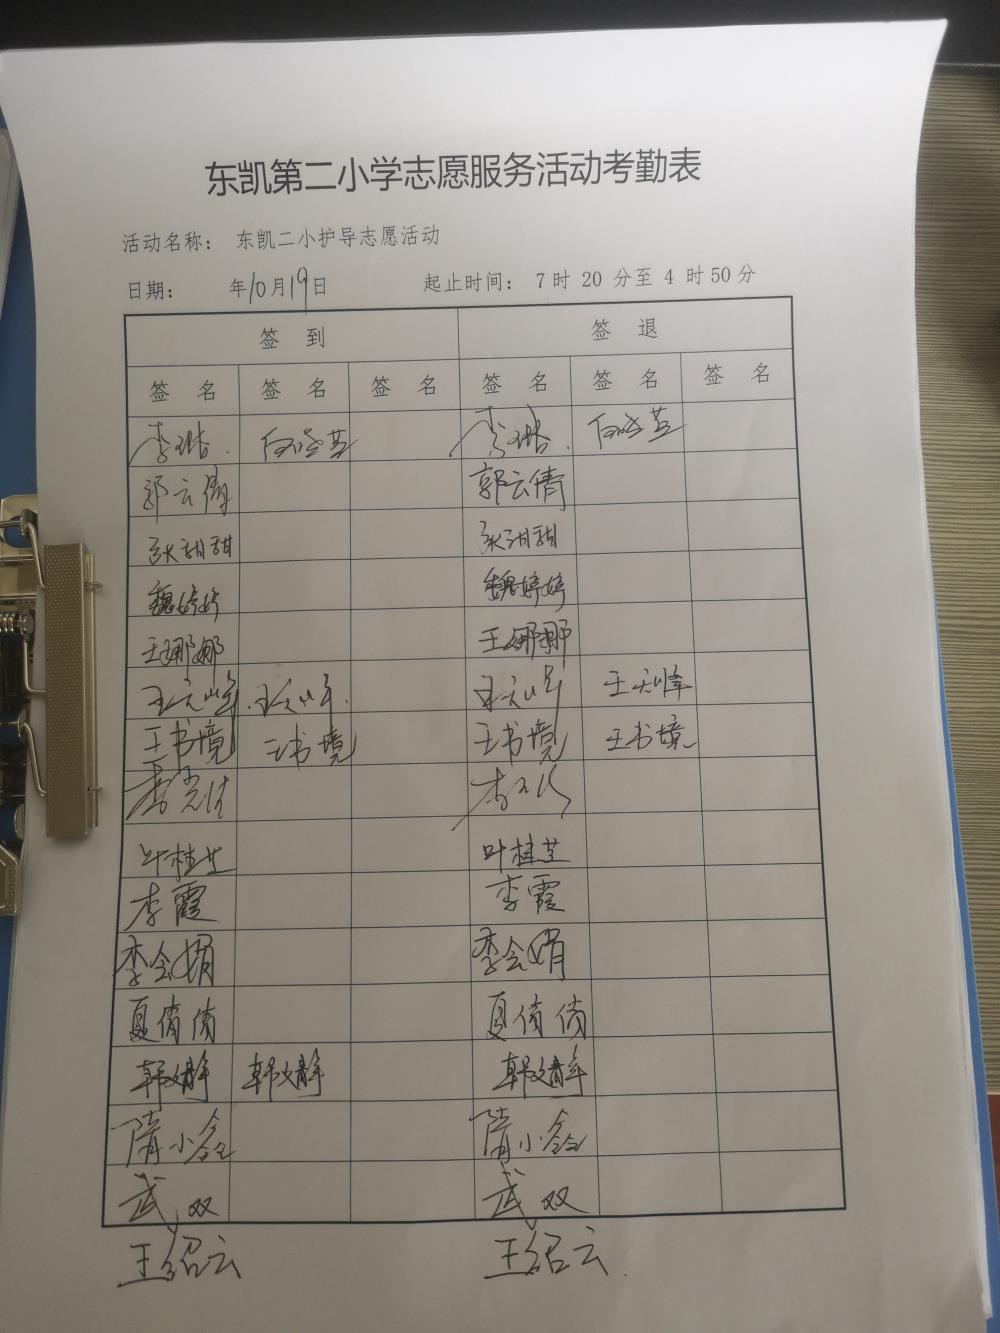 东凯第二小学志愿服务活动考勤表
活动名称： 东凯二小护导志愿活动
日期： 年10月19日 起止时间： 7时 20 分至 4 时50分
签 到 签 退
签 名 签 名 签 名 签 名 签 名 签 名
李琳 李琳
郭云倩 郭云倩
张甜甜 张甜甜
魏婷婷 魏婷婷
王娜娜 王娜娜
王天峰 王天峰 王天峰 王天峰
王书境 王书境 王书境 王书境
叶桂芝 叶桂芝
李霞 李霞
李会娟 李会娟
夏倩倩 夏倩倩
韩文静 韩文静 韩文静
隋小鑫 隋小鑫
武双 武双
王绍云 王绍云